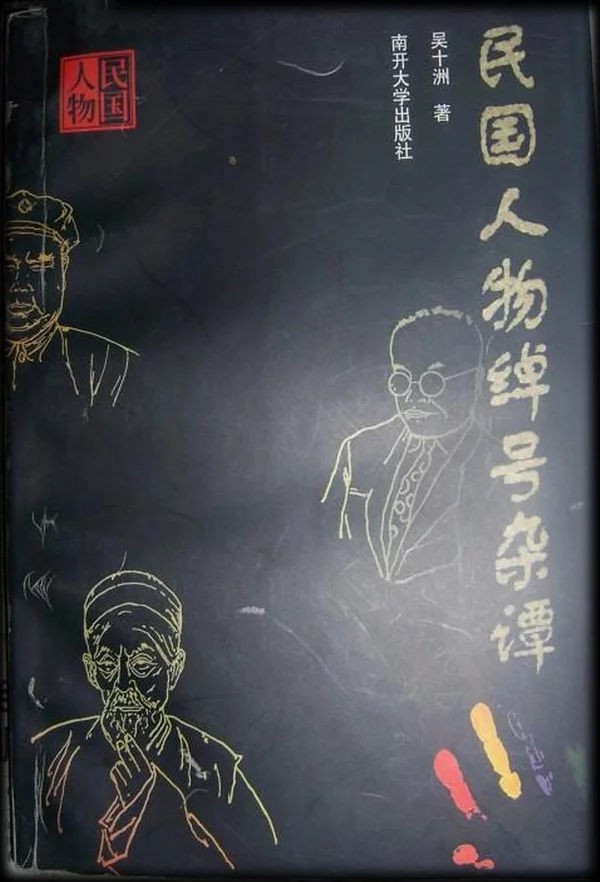 民国人物绰号杂谭
吴十洲 著
南开大学出版社
民国
人物